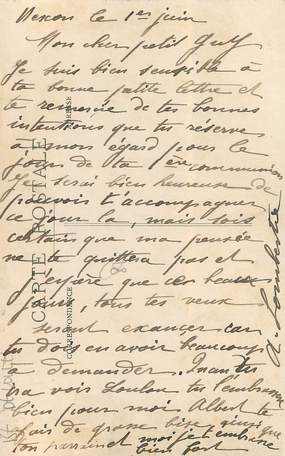 Nexon le 1er juin
Mon cher petit Guy
Je suis bien sensible à
ta bonne petite lettre et
te remercie de tes bonnes
intentions que tu réserve
à mon égard pour le
jour de ta 1ère communion
Je serai bien heureuse de
pouvoir t'accompagner
ce jour là, mais sois
certain que ma pensée
ne te quittera pas et
j'espère que ce beau
jour, tous tes veux
seront exaucer car
tu dois en avoir beaucoup
à demander. Quand tu
va voir Loulou, tu l'embrasse
bien pour moi Albert te
fais de grosse bise, ainsi que
ton parrain et moi je t'embrasse
bien fort
CARTE POSTALE
CORRESPONDANCE
ADRESSE